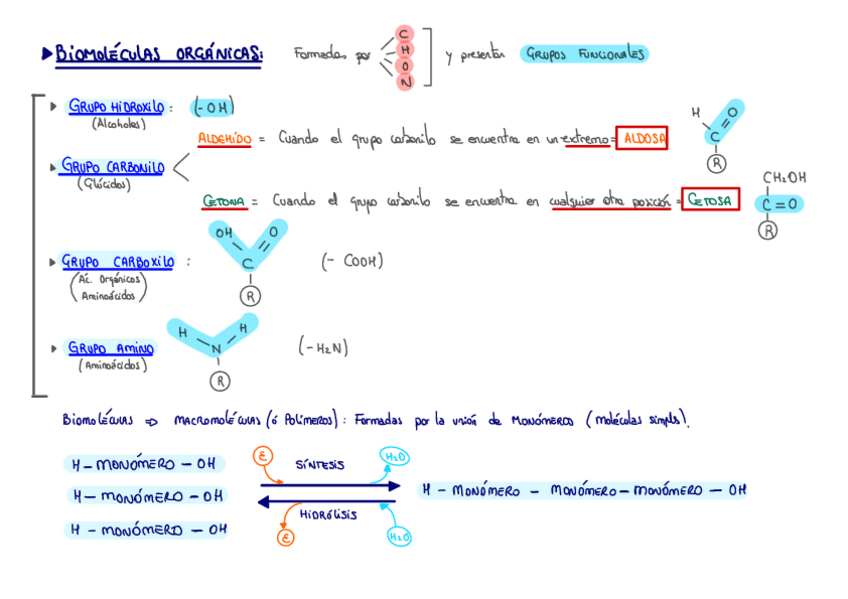 ▶ BIOMOLÉCULAS ORGÁNICAS: Formadas por C H O N y presentan GRUPOS FUNCIONALES
▶ GRUPO HIDROXILO : (-OH)
(Alcoholes)
ALDEHÍDO = Cuando el grupo carbonilo se encuentra en un extremo = ALDOSA
H O
C
R
▶ GRUPO CARBONILO
(Glúcidos)
CETONA = Cuando el grupo carbonilo se encuentra en cualquier otra posición = CETOSA
CH2OH
C = O
R
▶ GRUPO CARBOXILO : (- COOH)
(Ác. Orgánicos
Aminoácidos)
OH O
C
R
▶ GRUPO AMINO (-H2N)
(Aminoácidos)
H H
N
R
BIOMOLÉCULAS ⇒ MACROMOLÉCULAS (ó POLÍMEROS) : Formadas por la unión de MONÓMEROS (moléculas simples).
H - MONÓMERO - OH
H - MONÓMERO - OH
H - MONÓMERO - OH
E SÍNTESIS H2O
HIDRÓLISIS
E H2O
H - MONÓMERO - MONÓMERO - MONÓMERO - OH